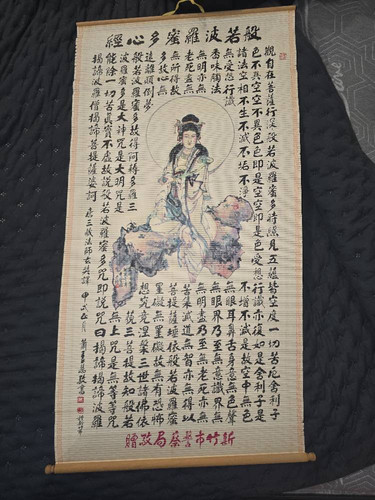 般若波羅蜜多心經
觀自在菩薩行深般若波羅蜜多時照見五蘊皆空度一切苦厄舍利子
色不異空空不異色色即是空空即是色受想行識亦復如是舍利子是
諸法空相不生不滅不垢不淨不增不減是故空中無色
無受想行識無眼耳鼻舌身意無色聲
香味觸法無眼界乃至無意識界無
無明亦無無明盡乃至無老死亦無
老死盡無苦集滅道無智亦無得以
無所得故菩提薩埵依般若波羅蜜
多故心無罣礙無罣礙故無有恐怖
遠離顛倒夢想究竟涅槃三世諸佛依
般若波羅蜜多故得阿耨多羅三藐三菩提故知般若
波羅蜜多是大神咒是大明咒是無上咒是無等等咒
能除一切苦真實不虛故說般若波羅蜜多咒即說咒曰揭諦揭諦波羅
揭諦波羅僧揭諦菩提薩婆訶
唐三藏法師玄奘譯 甲戌
新竹市警察局敬贈